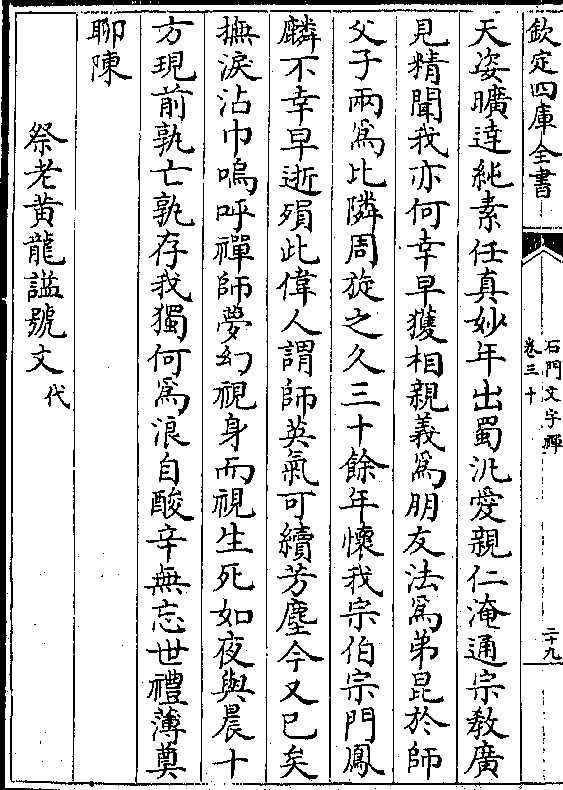 欽定四庫全書
石門文字禪
卷三十
二十九
天姿曠達純素任真妙年出蜀汎愛親仁淹通宗教廣
見精聞我亦何幸早獲相親義為朋友法為弟昆於師
父子兩為比隣周旋之久三十餘年懷我宗伯宗門鳳
麟不幸早逝殞此偉人謂師英氣可續芳塵今又已矣
撫淚沾巾嗚呼禪師夢幻視身而視生死如夜與晨十
方現前孰亡孰存我獨何為浪自酸辛無忘世禮薄奠
聊陳
祭老黃龍諡號文代